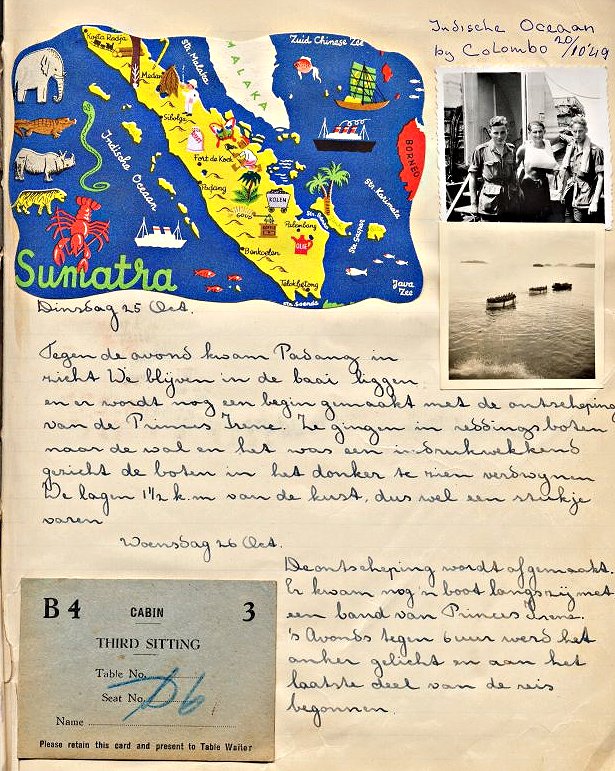 Indische Oceaan
by Colombo 20/10'49
Koeta Radja
Medan
Str. Malaka
MALAKA
Zuid Chinese Zee
Sibolga
Indische Oceaan
Fort de Kock
BORNEO
Padang
KOLEN
Str. Karimata
GOUD
Palembang
OLIE
Str. Gaspar
Benkoelen
Telokbetong
Java
Zee
Str. Soenda
Sumatra
Dinsdag 25 Oct.
Tegen de avond kwam Padang in
zicht We blijven in de baai liggen
en er wordt nog een begin gemaakt met de ontscheping
van de Princes Irene. Ze gingen in reddingsboten
naar de wal en het was een indrukwekkend
gezicht de boten in het donker te zien verdwijnen
We lagen 1½ k.m van de kust, dus wel een stukje
varen
Woensdag 26 Oct.
De ontscheping wordt afgemaakt.
Er kwam nog 'n boot langszij met
een band van Princes Irene.
's Avonds tegen 6 uur werd het
anker gelicht en aan het
laatste deel van de reis
begonnen.
B 4 CABIN 3
THIRD SITTING
Table No.
Seat No. D6
Name
Please retain this card and present to Table Waiter